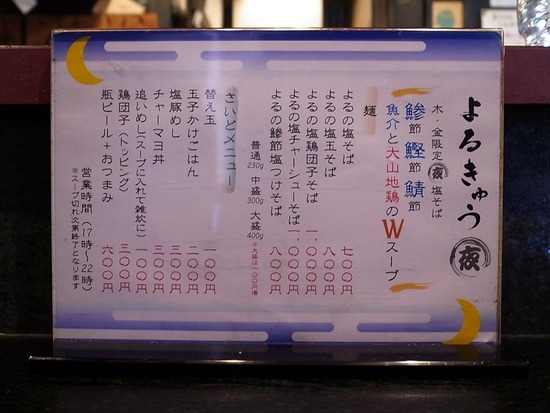 よるきゅう 夜
木・金限定 夜 塩そば
鯵節 鰹節 鯖節
魚介と大山地鶏のWスープ
麺
よるの塩そば 七〇〇円
よるの塩玉そば 八〇〇円
よるの塩鶏団子そば 一、〇〇〇円
よるの塩チャーシューそば 一、〇〇〇円
よるの鯵節塩つけそば 八〇〇円
普通 230g 中盛 300g 大盛 400g
※大盛は一〇〇円増
さいどメニュー
替え玉 一〇〇円
玉子かけごはん 二〇〇円
塩豚めし 三〇〇円
チャーマヨ丼 三〇〇円
追いめし(スープに入れて雑炊に) 一〇〇円
鶏団子(トッピング) 三〇〇円
瓶ビール+おつまみ 六〇〇円
営業時間(17時〜22時)
※スープ切れ次第終了となります